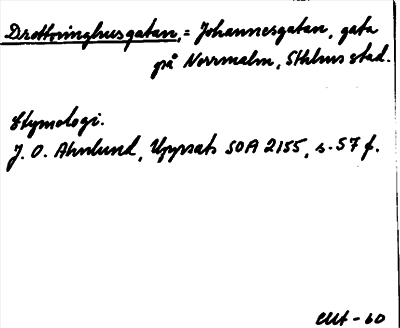 Drottninghusgatan, = Johannesgatan, gata
på Norrmalm, Sthlms stad.
Etymologi.
J. O. Ahnlund, Uppsats SOA 2155, s. 57 f.
-60